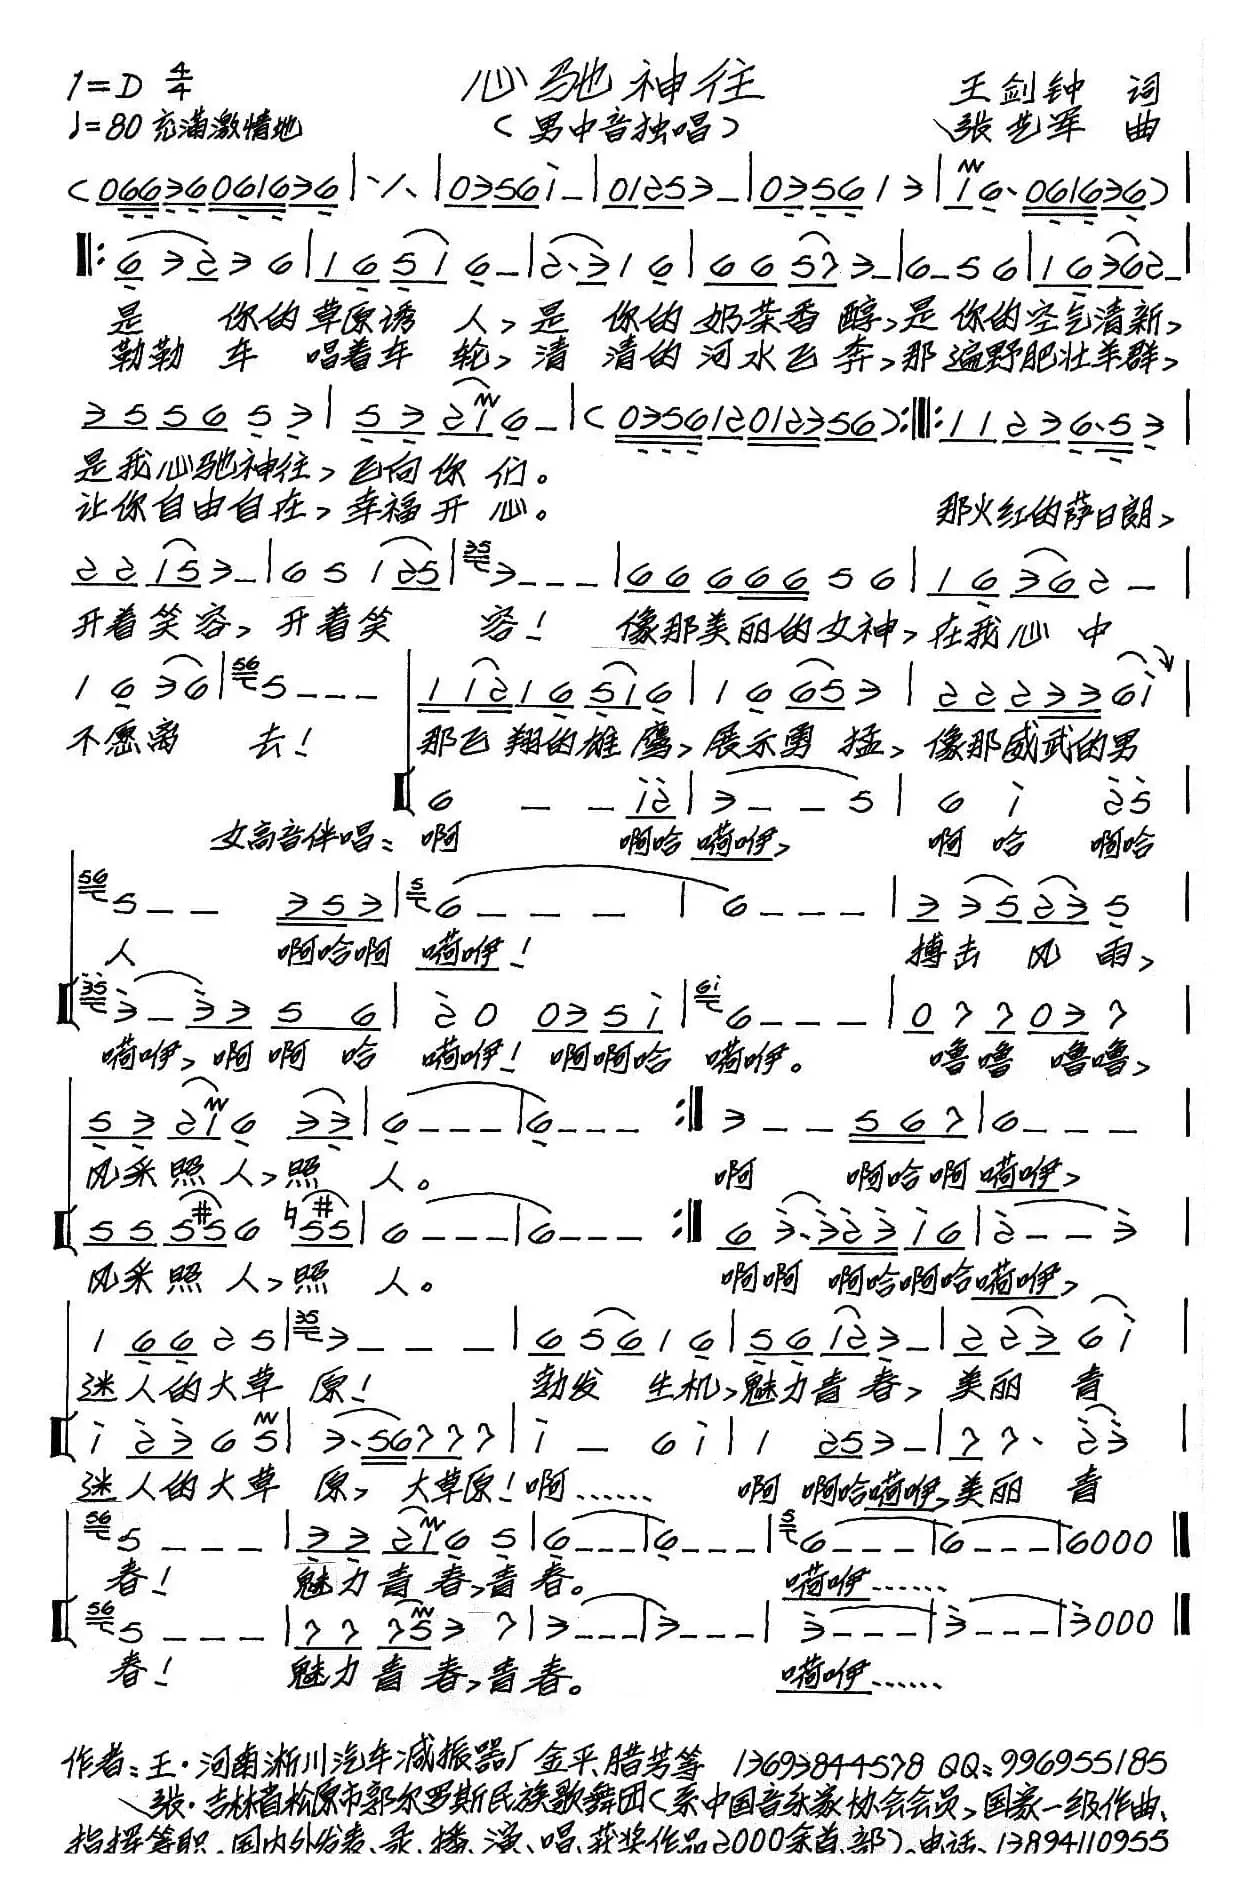 1=D 4/4 心驰神往 王剑钟 词
♩=80 充满激情地 (男中音独唱) 张艺军 曲
(06636061636|·/.|03561̇_|01253_|0356 1 3|1̇6·061636)|
‖:6 3 2 3 6|16516_|2·3 1 6|66573_|6_56|16362_|
是 你的草原诱 人,是 你的奶茶香醇,是你的空气清新,
勒勒 车 唱着车 轮,清 清的河水飞奔,那遍野肥壮羊群,
355653|53216_|(035612012356):‖:11236·53|
是我心驰神往,飞向你们。
让你自由自在,幸福开心。 那火红的萨日朗,
22153_|65125|3___|6666656|16362_|
开着笑容,开着笑 容! 像那美丽的女神,在我心中
1636|5___|11216516|16653|2223361̇|
不愿离 去! 那飞翔的雄鹰,展示勇猛,像那威武的男
6__1̇2̇|3̇__5|6 1̇ 2̇5|
女高音伴唱: 啊 啊哈嗬咿, 啊哈 啊哈
5__353|6___|6___|335235|
人 啊哈啊 嗬咿! 搏击风雨,
3̇_3̇3 5 6|2̇0 0351̇|6___|077037|
嗬咿,啊啊 哈 嗬咿! 啊啊哈 嗬咿。 噜噜 噜噜,
53216 33|6___|6___:‖3__567|6___|
风采照人,照 人。 啊 啊哈啊嗬咿,
55 5#56 ♮5#5|6___|6___:‖6 3̇·3̇2̇3̇1̇6|2̇__3̇|
风采照人,照 人。 啊啊 啊哈啊哈嗬咿,
1 6625|3___|65616|56123_|22361̇|
迷人的大草 原! 勃发 生机,魅力青春,美丽 青
1̇2̇3̇65|3·56777|1̇_61̇|1253_|77·2̇3̇|
迷人的大草 原,大草原!啊…… 啊 啊哈嗬咿,美丽 青
5___|332165|6___|6___|6___|6___|6000‖
春! 魅力青春,青春。 嗬咿……
5___|777537|3___|3___|3̇___|3̇___|3̇000‖
春! 魅力青春,青春。 嗬咿……
作者:王·河南淅川汽车减振器厂金平、腊芳等 13693844578 QQ:996955185
张·吉林省松原市郭尔罗斯民族歌舞团(系中国音乐家协会会员,国家一级作曲、
指挥等职.国内外发表、录、播、演、唱、获奖作品2000余首、部).电话、13894110955